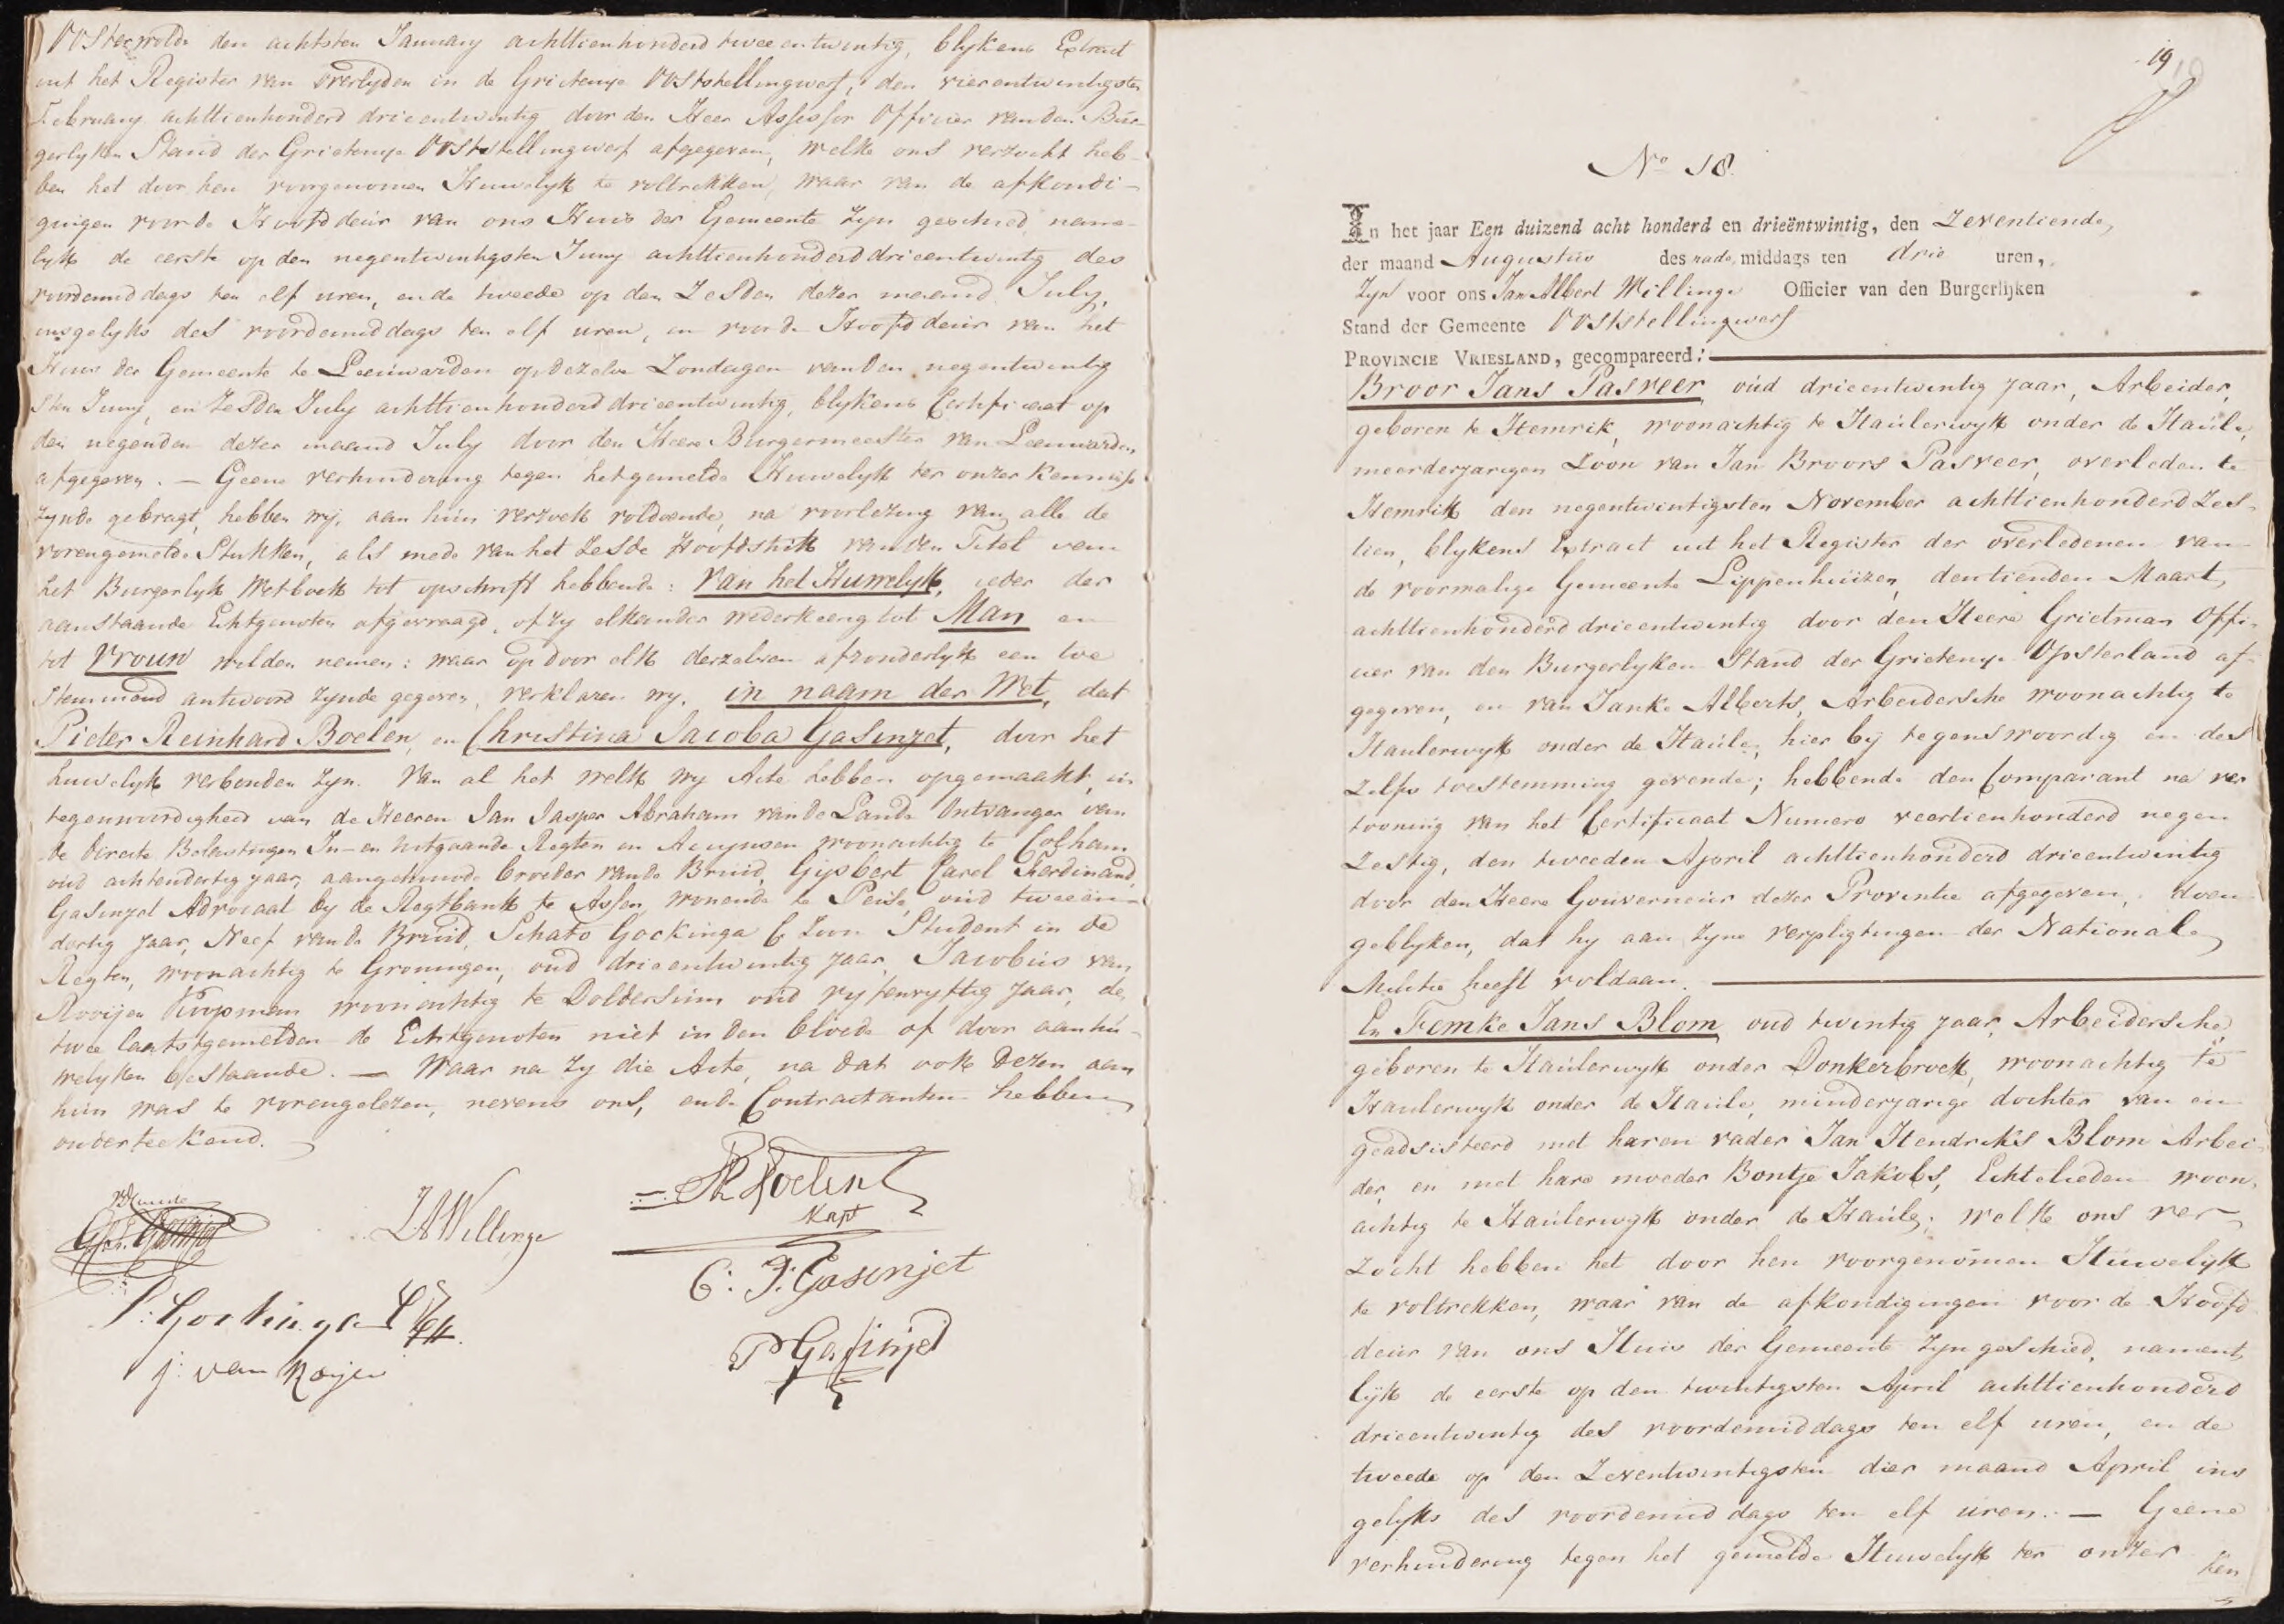 Oosterwolde den achtsten January achttienhonderd twee en twintig, blykens Extract
uit het Register van Overlyden in de Grietenye Ooststellingwerf, den vierentwintigsten
February achttienhonderd drieentwintig door den Heer Assessor Officier van den Bur-
gerlyken Stand der Grietenye Ooststellingwerf afgegeven, welke ons verzocht heb-
ben het door hen voorgenomen Huwelyk te voltrekken, waar van de afkondi-
gingen voor de Hoofddeur van ons Huis der Gemeente zyn geschied, name-
lyk de eerste op den negentwintigsten Juny achttienhonderd drieentwintig des
voordemiddags ten elf uren, en de tweede op den Zesden dezer maand July,
insgelyks des voordemiddags ten elf uren, en voor de Hoofd deur van het
Huis der Gemeente te Leeuwarden op dezelve Zondagen van den negentwintig
sten Juny, en Zesden July achttienhonderd drieentwintig, blykens Certificaat op
den negenden dezer maand July door den Heere Burgermeester van Leeuwarden
afgegeven. — Geene verhindering tegen het gemelde Huwelyk ter onzer kennisse
zynde gebragt, hebben wy, aan hun verzoek voldoende, na voorlezing van alle de
vorengemelde Stukken, als mede van het Zesde Hoofdstuk van den Titel van
het Burgerlyk Wetboek tot opschrift hebbende: Van het Huwelyk, ieder der
aanstaande Echtgenoten afgevraagd, of zy elkander wederkeerig tot Man en
tot Vrouw wilden nemen: waar op door elk derzelven afzonderlyk een toe
stemmend antwoord zynde gegeven, verklaren wy, in naam der Wet, dat
Pieter Reinhard Boelen, en Christina Jacoba Gasinjet, door het
huwelyk verbonden zyn. Van al het welk wy Acte hebben opgemaakt, in
tegenwoordigheid van de Heeren Jan Jasper Abraham van de Lande Ontvanger van
de Directe Belastingen In- en uitgaande Regten en Accynsen woonachtig te Colham
oud achtendertig jaar, aangehuwde broeder van de Bruid, Gijsbert Carel Ferdinand
Gasinjet Advocaat by de Regtbank te Assen, wonende te Peise, oud tweeen-
dertig jaar, Neef van de Bruid, Schato Gockinga C Zoon Student in de
Regten, woonachtig te Groningen, oud drieentwintig jaar, Jacobus van
Rooijen Koopman woonachtig te Doldersum oud vyfenvyftig jaar, de
twee laatstgemelden de Echtgenoten niet in den bloede of door aanhu-
welyken bestaande. — Waar na zy die Acte, na dat ook Dezen aan
hun was te vorengelezen, nevens ons, en de Contractanten hebben
onderteekend.
PR Boelen
Kapt
JAWillinge
C: J: Gasinjet
S: Gockinga
j: van Roijen
Gasinjet
19
No 18.
In het jaar Een duizend acht honderd en drieëntwintig, den Zeventiende,
der maand Augustus des nade middags ten drie uren,
Zyn voor ons Jan Albert Willinge Officier van den Burgerlijken
Stand der Gemeente Ooststellingwerf
PROVINCIE VRIESLAND, gecompareerd:
Broor Jans Pasveer, oud drieentwintig jaar, Arbeider,
geboren te Hemrik, woonachtig te Haulerwyk onder de Haule,
meerderjarigen Zoon van Jan Broors Pasveer, overleden te
Hemrik den negentwintigsten November achttienhonderd Zes-
tien, blykens Extract uit het Register der overledenen van
de voormalige Gemeente Lippenhuizen, den tienden Maart,
achttienhonderd drieentwintig door den Heere Grietman Offi-
cier van den Burgerlyken Stand der Grietenye Opsterland af-
gegeven, en van Janke Alberts, Arbeidersche woonachtig te
Haulerwyk onder de Haule, hier by tegenswoordig en des
zelfs toestemming gevende; hebbende den Comparant na ver
tooning van het Certificaat Numero veertienhonderd negen
Zestig, den tweeden April achttienhonderd drieentwintig
door den Heere Gouverneur dezer Provintie afgegeven, doen
geblyken, dat hy aan zyne verpligtingen der Nationale
Militie heeft voldaan.
En Femke Jans Blom oud twintig jaar, Arbeidersche
geboren te Haulerwyk onder Donkerbroek, woonachtig te
Haulerwyk onder de Haule, minderjarige dochter van en
geadsisteerd met haren vader Jan Hendriks Blom Arbei-
der, en met hare moeder Bontje Jakobs, Echtelieden woon-
achtig te Haulerwyk onder de Haule; welke ons ver-
zocht hebben het door hen voorgenomen Huwelyk
te voltrekken, waar van de afkondigingen voor de Hoofd
deur van ons Huis der Gemeente zyn geschied, nament
lyk de eerste op den twintigsten April achttienhonderd
drieentwintig des voordemiddags ten elf uren, en de
tweede op den Zeventwintigsten dier maand April ins
gelyks des voordemiddags ten elf uren. — Geene
verhindering tegen het gemelde Huwelyk ter onzer
ken